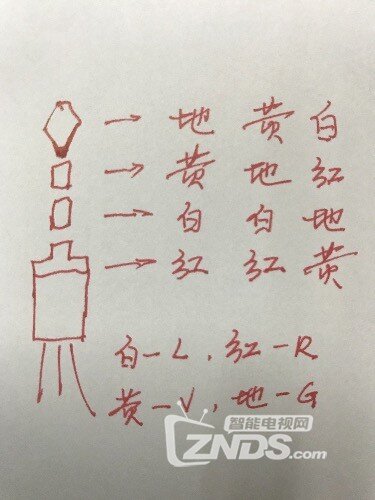 → 地 黄 白
→ 黄 地 红
→ 白 白 地
→ 红 红 黄
白-L、红-R
黄-V、地-G
智能电视网
ZNDS.com